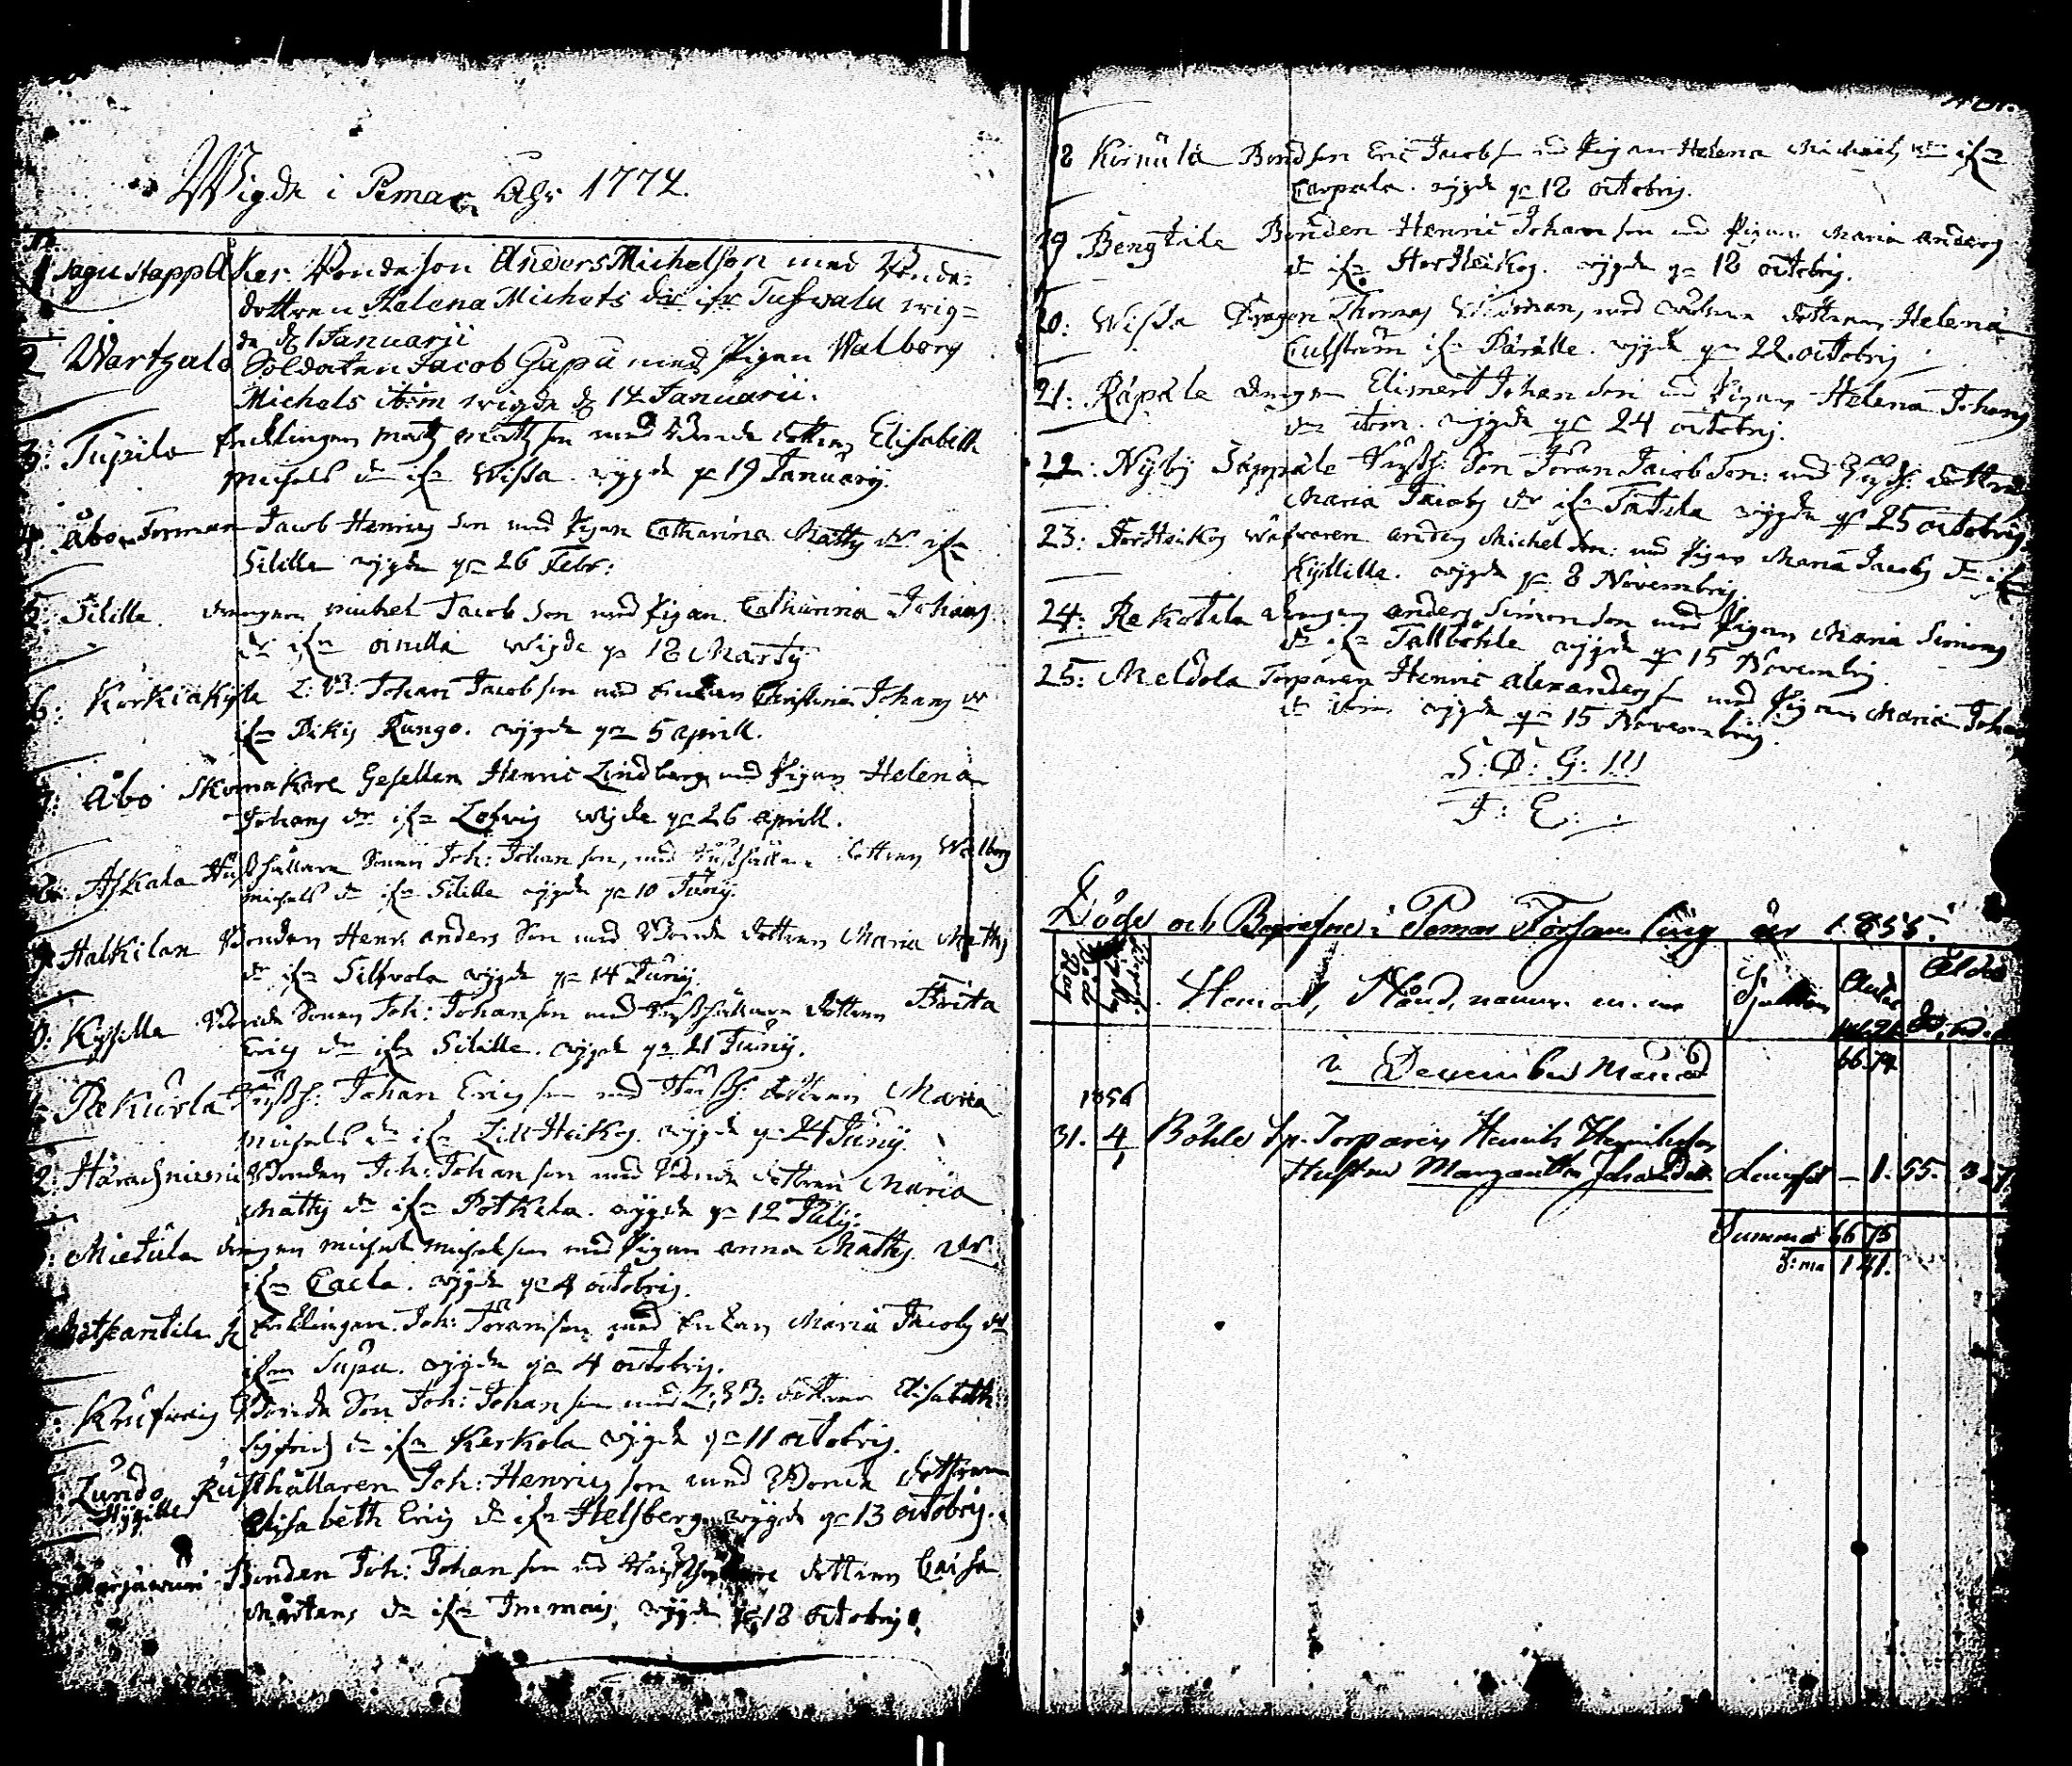 Wigde i Pemar Åhr 1774.
1 Bondeson Anders Michelson med Bonde-
dottren Helena Michels dr ifr Tufwala wig=
de d 1 Januarii
2 Wartsala Soldaten Jacob Gapa med Pigan Walborg
Michels ibim wigde d 14 Januarii.
3: Tupila Encklingen Matts Mattsson med Bonde dottren Elisabeth
Michels dr ifr Wissa. wygde pr 19 Januarij.
4: Åbo Forman Jacob Henrics son med Pigan Catharina Matts dr ifr
Silille wygde pr 26 Febr:
5: Silille. drengen Michel Jacob son med Pigan Catharina Johans
dr ifr wigde pr 18 Martij
6: Korkiakylle L: B: Johan Jacobson med Enkan Christina Johans dr
ifr Pikis Kungo. wygde pr 5 aprill.
7: Åbo Skomakare Gesellen Henric Lindberg med Pigan Helena
Johans dr ifr Lofvis wigde pr 26 aprill.
8: Askala Rusthållare Sonen Joh: Johanson, med Rusthållare dottren Walborg
Michels dr ifr Silille wygde pr 10 Junij.
9: Halkilan Bonden Henr: anders Son med Bonde dottren Maria Matts
dr ifr wygde pr 14 Junij.
0: Bonde Sonen Joh: Johanson med Rusthållare dottren Brita
Erics dr ifr Silille. wygde pr 21 Junij.
Pekurla Rusth: Johan Ericsson med Rusth: dottren Maria
Michels dr ifr LillHeikos. wygde pr 24 Junij.
2: Häraschniemi Bonden Joh: Johanson med Bonde dottren Maria
Matts dr ifr Potkela. wygde pr 12 Julij.
: Mietula drengen Michel Michelson med Pigan anna Matts dr
ifr Caela. wygde pr 4 octobris.
Encklingen Joh: Göranson med Enkan Maria Jacobs dr
ifrn Supa. wygde pr 4 octobris.
: Bonde Son Joh: Johanson med L: B: dottren Elisabeth
Sigfrids dr ifr Kerkola wygde pr 11 octobris.
Lundo Rusthållaren Joh: Henricsson med Bonde dottren
Elisabeth Erics dr ifr Helsberg wygde pr 13 octobris.
Bonden Joh: Johanson med Rusthållare dottren Caisa
Mårtens dr ifr Immais. wygde pr 18 octobris.
18 Bondson Eric Jacobson med Pigan Helena Michels dr ifr
Carpala. wygde pr 18 octobris.
19 Bengtile Bonden Henric Johanson med Pigan Maria anders
dr ifr StorHeikos. wygde pr 18 octobris.
20: Wissa Dragon Thomas Widman, med dottren Helena
ifr Pärälle. wygde pr 22 octobris
21: Räpäle drengen Elimert Johanson med Pigan Helena Johans
dr ibm. wygde pr 24 octobris.
22: Nyby Säppäle Rusth: Son Jöran Jacobson: med Rusth: dottren
Maria Jacobs dr ifr Tatila wygde pr 25 octobris.
23: StorHeikos wäfwaren anders Michelson: med Pigan Maria Jacobs dr ifr
wygde pr 8 Novembris.
24: Rekottila drengen anders Simonson med Pigan Maria Simons
dr ifr Tallbohle wygde pr 15 Novembris.
25: Meldola Torparen Henric alexandersson med Pigan Maria Johans
dr ibm wygde pr 15 Novembris.
S: D: G: !!!
F: E:
Döde och Begrafne i Pemar Församling år 1855.
Hemort, Stånd, namn m. m. Sjukdom Antal Ålder
i December Månad 66. 74
1856
31. 4/1 Böhle by. Torparen Henrik Henriksson
Hustru Margaretha Johansdotter Lungsot — 1. 55. 3. 27
Summa 66 75
S:ma 141.